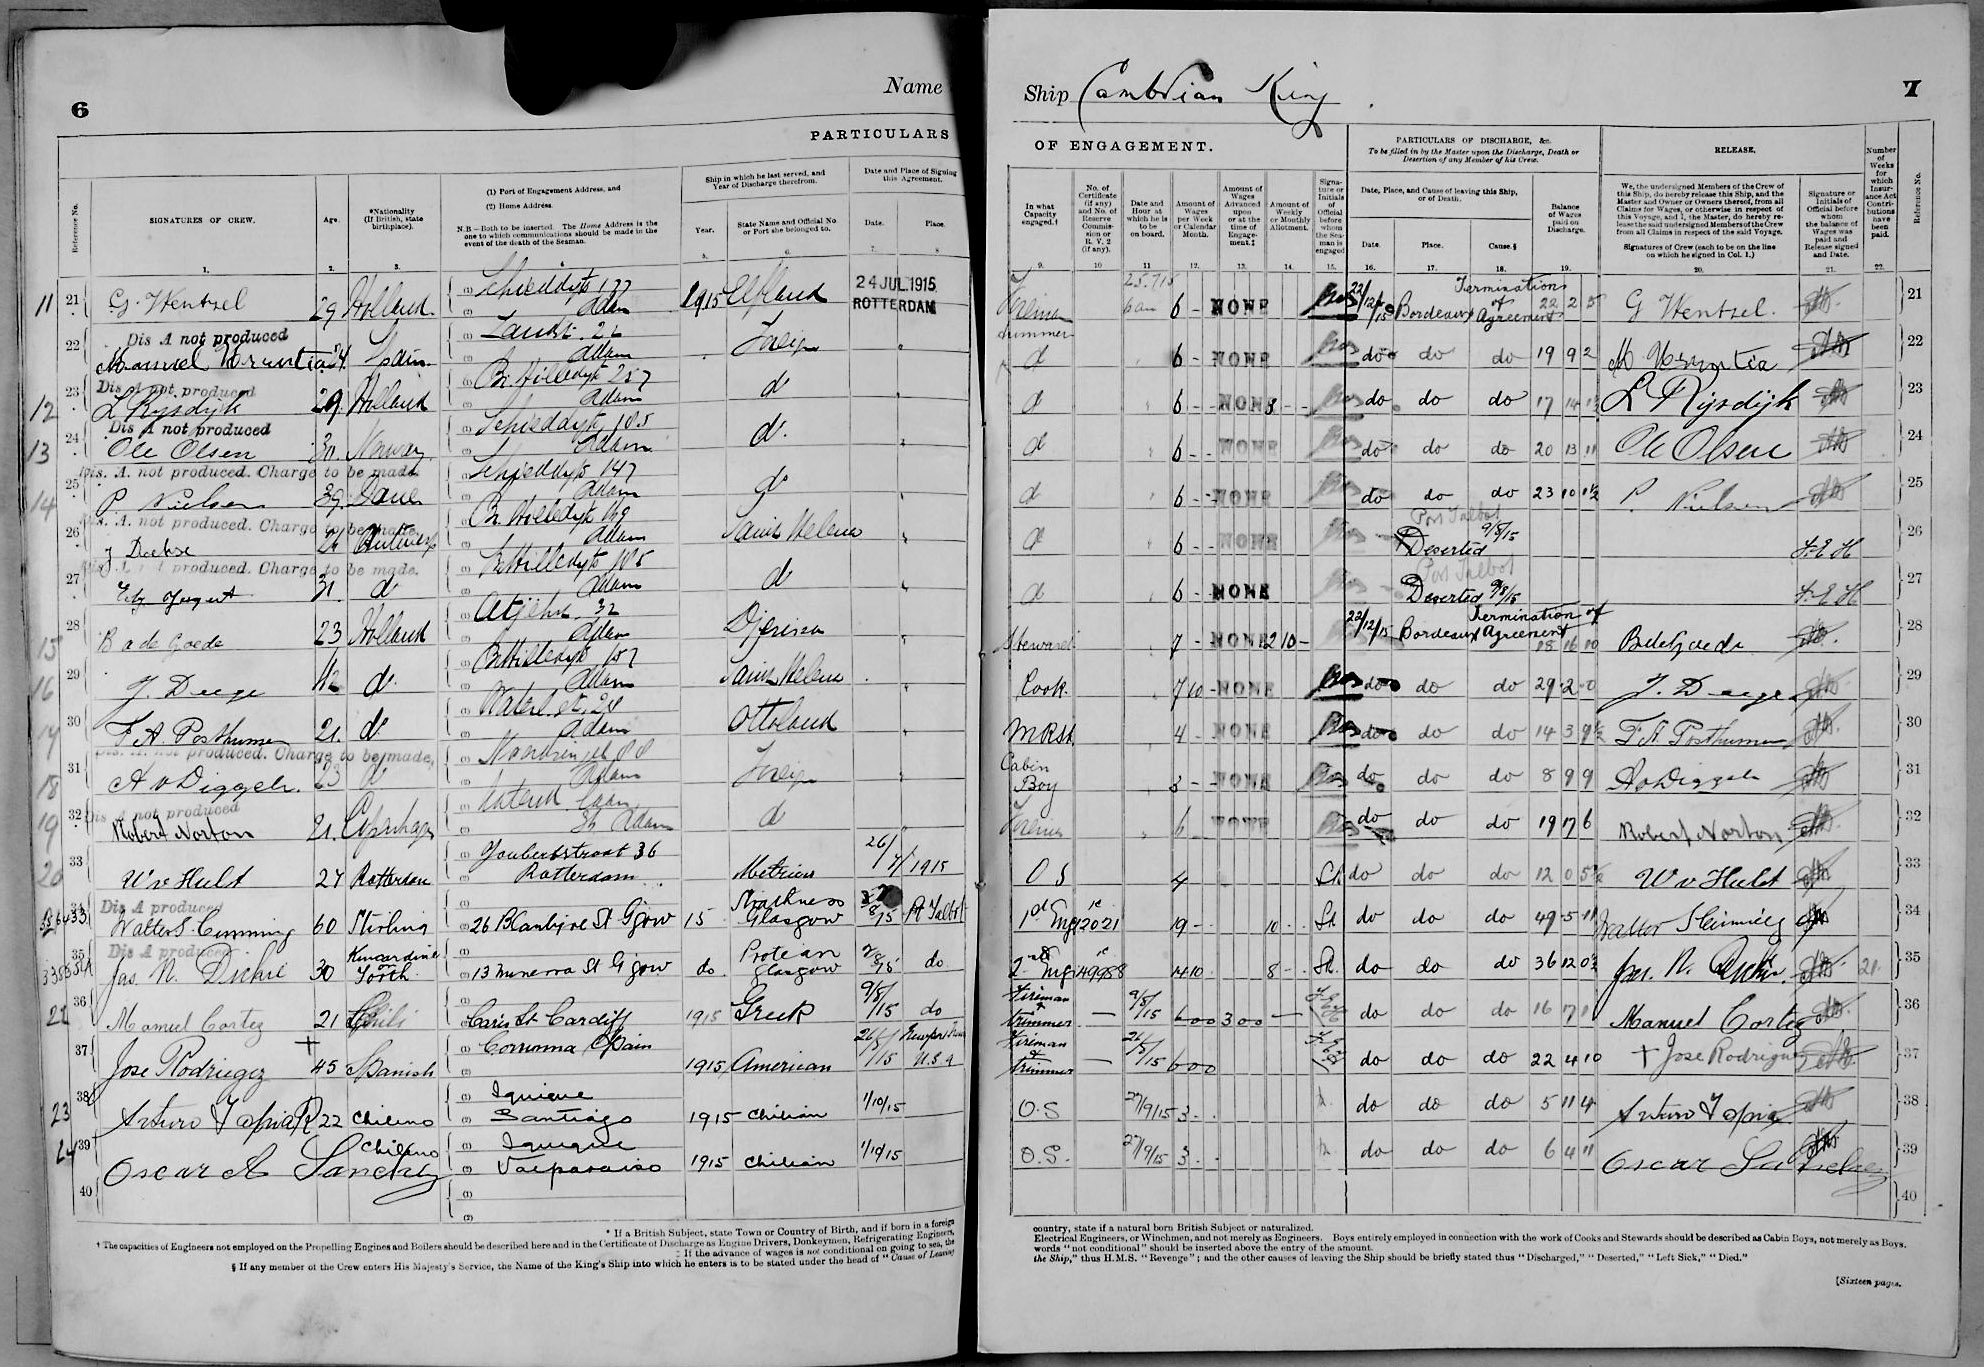 6
Name
PARTICULARS
Reference No.
SIGNATURES OF CREW.
Age.
*Nationality
(If British, state
birthplace).
(1) Port of Engagement Address, and
(2) Home Address.
N.B.—Both to be inserted. The Home Address is the
one to which communications should be made in the
event of the death of the Seaman.
Ship in which he last served, and
Year of Discharge therefrom.
Year.
State Name and Official No.
or Port she belonged to.
Date and Place of Signing
this Agreement.
Date.
Place.
1. 2. 3. 5. 6. 7. 8
11 21 G. Wentzel 29 Holland 1915 24 JUL. 1915
Adam ROTTERDAM
Dis A not produced
22 Manuel Spain
Adam
Dis A not produced
12 23 L Rysdyk 29 Holland d
Adam
Dis A not produced
13 24 Ole Olsen 30 Norway d
Adam
Dis. A. not produced. Charge to be made
14 25 P. Nielsen 39 Dane d
Adam
Dis. A. not produced. Charge to be made.
26 Saint Helena
Adam
Dis. A not produced. Charge to be made.
27 31 d d
Adam
15 28 B a de Goede 23 Holland 32
Adam
16 29 J. Deege 42 d Saint Helena
Adam
17 30 F. A. Posthumus 21 d
Adam
Dis. A. not produced. Charge to be made,
18 31 A v Diggele 23 d
Adam
Dis A not produced
19 32 Robert Norton 21 d
Adam
20 33 W v Hulst 27 Rotterdam Joubertstraat 36 26/7/1915
Rotterdam
Dis A produced
34 Walter S. Cumming 60 Stirling 26 St Glgow 15 Strathness Glasgow 8/15 Pt Talbot
Dis A produced
35 Jas. N. Dickie 30 Kincardine on Forth 13 Minerva St Glgow do Protean Glasgow do
22 36 Manuel Cortez 21 Chili St Cardiff 1915 Greek 9/8/15 do
37 Jose Rodriguez 45 Spanish Spain 1915 American Newport News U.S.A
23 38 Arturo Tapia R 22 Chileno Iquique 1915 Chilian 1/10/15
Santiago
24 39 Oscar A Sanchez Chileno Iquique 1915 Chilian 1/10/15
Valparaiso
40
* If a British Subject, state Town or Country of Birth, and if born in a foreign
† The capacities of Engineers not employed on the Propelling Engines and Boilers should be described here and in the Certificate of Discharge as Engine Drivers, Donkeymen, Refrigerating Engineers,
‡ If the advance of wages is not conditional on going to sea, the
§ If any member of the Crew enters His Majesty's Service, the Name of the King's Ship into which he enters is to be stated under the head of "Cause of Leaving
Ship Cambrian King
7
OF ENGAGEMENT.
PARTICULARS OF DISCHARGE, &c.
To be filled in by the Master upon the Discharge, Death or
Desertion of any Member of his Crew.
RELEASE.
In what
Capacity
engaged.†
No. of
Certificate
(if any)
and No. of
Reserve
Commis-
sion or
R. V. 2
(if any).
Date and
Hour at
which he is
to be
on board.
Amount of
Wages
per Week
or Calendar
Month.
Amount of
Wages
Advanced
upon
or at the
time of
Engage-
ment.‡
Amount of
Weekly
or Monthly
Allotment.
Signa-
ture or
Initials
of
Official
before
whom
the Sea-
man is
engaged
Date, Place, and Cause of leaving this Ship,
or of Death.
Date.
Place.
Cause.§
Balance
of Wages
paid on
Discharge.
We, the undersigned Members of the Crew of
this Ship, do hereby release this Ship, and the
Master and Owner or Owners thereof, from all
Claims for Wages, or otherwise in respect of
this Voyage, and I, the Master, do hereby re-
lease the said undersigned Members of the Crew
from all Claims in respect of the said Voyage.
Signatures of Crew (each to be on the line
on which he signed in Col. 1.)
Signature or
Initials of
Official before
whom
the balance of
Wages was
paid and
Release signed
and Date.
Number
of
Weeks
for
which
Insur-
ance Act
Contri-
butions
have
been
paid.
Reference No.
9. 10 11 12. 13. 14. 15. 16. 17. 18. 19. 20. 21. 22.
6 NONE 22/12/15 Bordeaux Termination of Agreement 22 2 5 G Wentzel. 21
d 6 - NONE do do do 19 9 2 22
d 6 - - NONE do do do 17 14 L Rysdijk 23
d 6 - - NONE do do do 20 13 11 Ole Olsen 24
d 6 - - NONE do do do 23 10 1½ P. Nielsen 25
d 6 - - NONE Port Talbot Deserted 9/8/15 F.E.H 26
d 6 - NONE Port Talbot Deserted 9/8/15 F.E.H 27
Steward 7 - NONE 2 10 - 22/12/15 Bordeaux Termination of Agreement 18 16 10 B de Goede 28
Cook. 7 10 - NONE do do do 29 2 0 J. Deege 29
4 - NONE do do do 14 3 9½ F A Posthumus 30
Cabin Boy 3 - NONE do do do 8 9 9 A v Diggele 31
6 NONE do do do 19 7 6 Robert Norton 32
O S 4 do do do 12 0 W v Hulst 33
1st Eng 12021 19 - 10 do do do 49 5 11 34
2nd Eng 49958 14 10 8 - do do do 36 12 Jas. N. Dickie. 21 35
Fireman & trimmer — 9/8/15 6 00 3 00 — do do do 16 7 1 Manuel Cortez 36
Fireman & trimmer — 6 00 do do do 22 4 10 + Jose Rodriguez 37
O.S 27/9/15 3 - do do do 5 11 4 Arturo Tapia 38
O.S. 27/9/15 3 - do do do 6 4 11 Oscar Sanchez 39
40
country, state if a natural born British Subject or naturalized.
Electrical Engineers, or Winchmen, and not merely as Engineers. Boys entirely employed in connection with the work of Cooks and Stewards should be described as Cabin Boys, not merely as Boys.
words "not conditional" should be inserted above the entry of the amount.
the Ship," thus H.M.S. "Revenge"; and the other causes of leaving the Ship should be briefly stated thus "Discharged," "Deserted," "Left Sick," "Died."
[Sixteen pages.